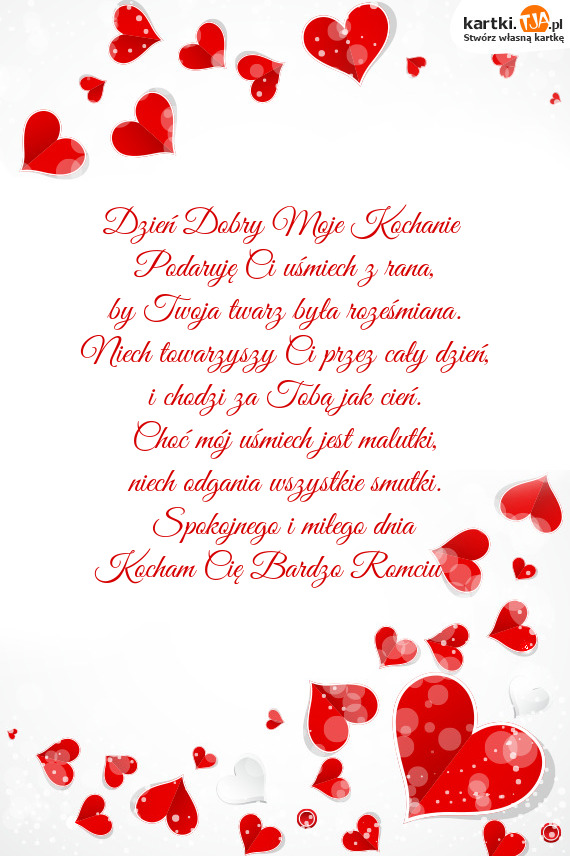 kartki.TJA.pl
Stwórz własną kartkę
Dzień Dobry Moje Kochanie
Podaruję Ci uśmiech z rana,
by Twoja twarz była roześmiana.
Niech towarzyszy Ci przez cały dzień,
i chodzi za Tobą jak cień.
Choć mój uśmiech jest malutki,
niech odgania wszystkie smutki.
Spokojnego i miłego dnia
Kocham Cię Bardzo Romciu.